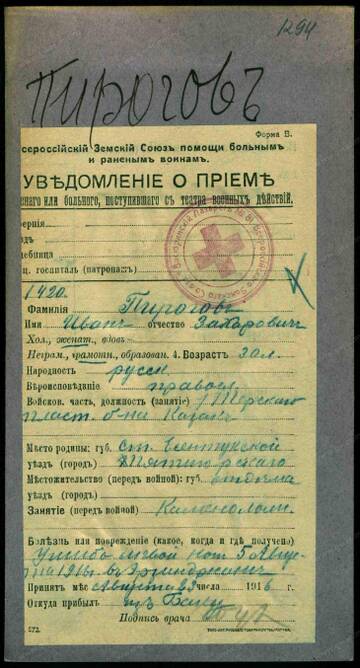 1294
Пироговъ
Форма В.
Всероссійскій Земскій Союзъ помощи больнымъ
и раненымъ воинамъ.
УВѢДОМЛЕНІЕ О ПРІЕМѢ
наго или больного, поступившаго съ театра военныхъ дѣйствій.
бернія
одъ
чебница
ц. госпиталь (патронатъ)
1420.
Фамилія Пироговъ
Имя Иванъ отчество Захаровичъ
Хол., женат., вдовъ.
Неграм., грамотн., образован. 4. Возрастъ 30 л.
Народность русск.
Вѣроисповѣданіе правосл.
Войсков. часть, должность (занятіе) 1 Терскаго
пласт. б-на Казакъ
Мѣсто родины: губ. ст. Ессентукской
уѣздъ (городъ) Пятигорскаго
Мѣстожительство (передъ войной): губ. отдѣла
уѣздъ (городъ)
Занятіе (передъ войной) Каменолом.
Болѣзнь или поврежденіе (какое, когда и гдѣ получено)
Ушибъ лѣвой ног. 5 Авгус
та 1916 г. въ Эрзинджанѣ
Принятъ мѣс. Августа 1916 числа
Откуда прибылъ изъ Баку
Подпись врача
572.